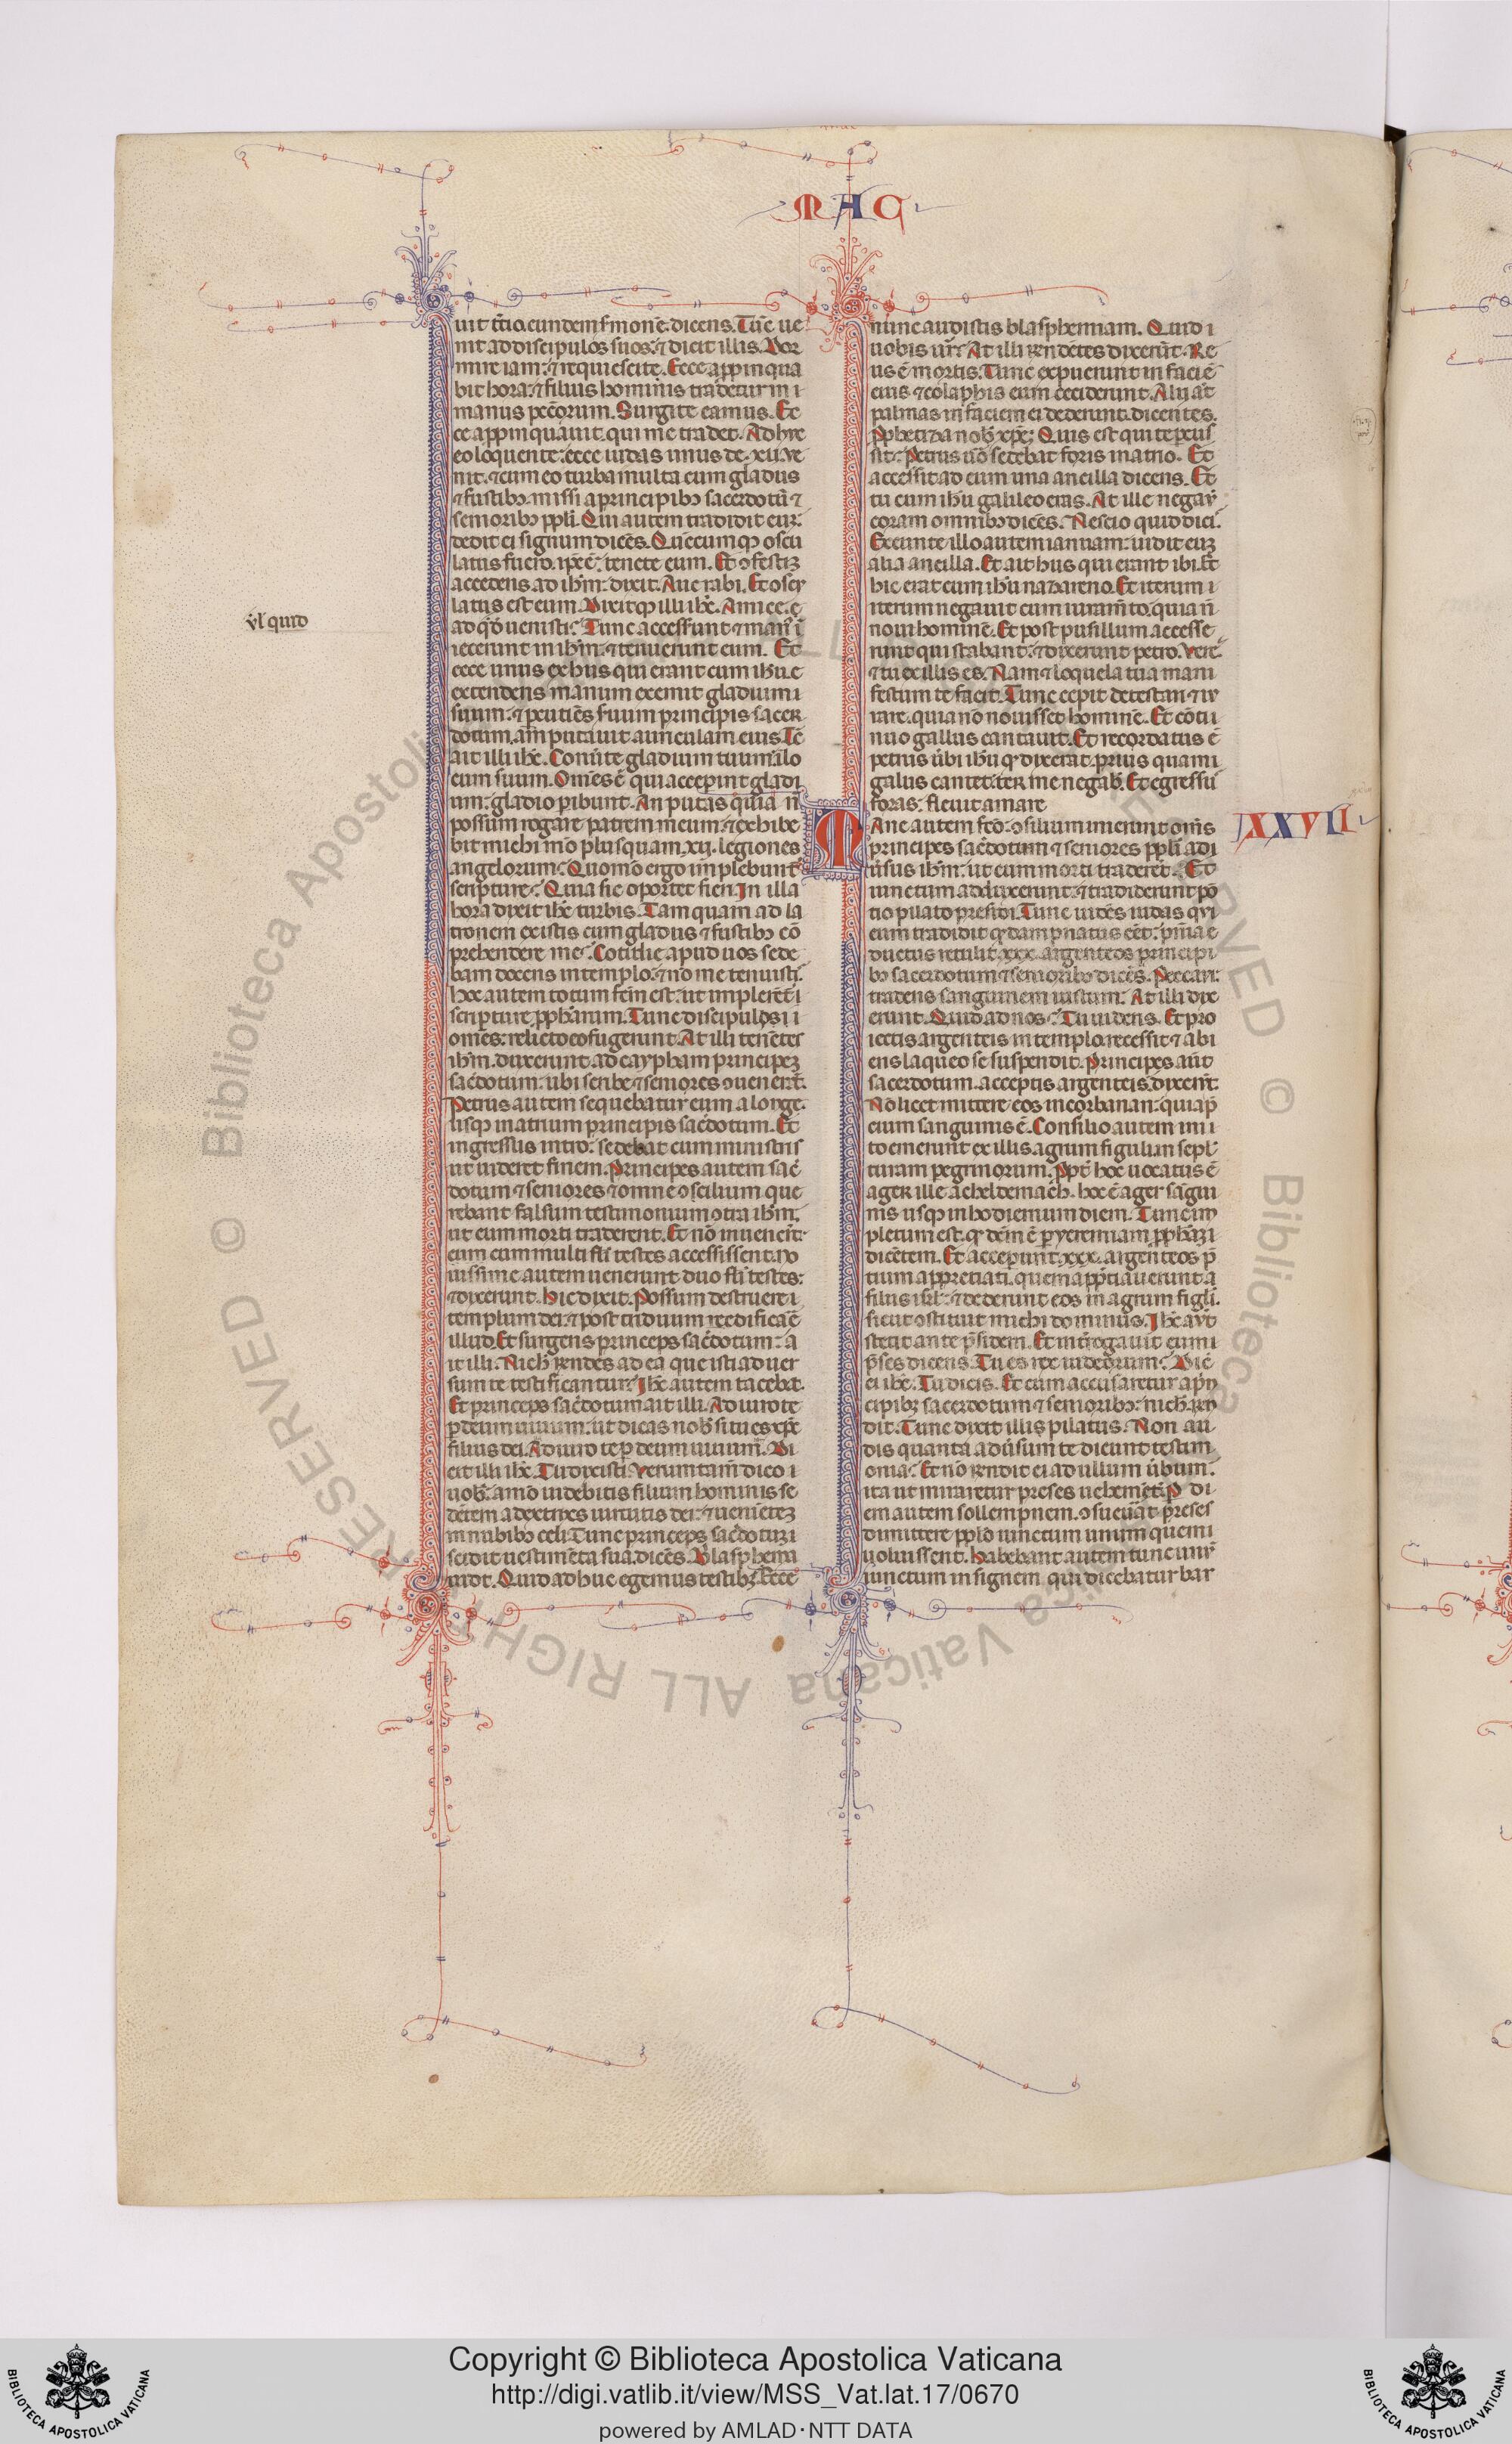 MAC
uit t̄cio. eundem s̄monē. dicens. Tūc ue
nit ad discipulos suos: ⁊ dicit illis. Dor
mite iam: ⁊ requiescite. Ecce appinqua
bit hora: ⁊ filius hominis tradetur in i
manus pecc̄orum. Surgite eamus. Ec
ce appinquauit. qui me tradet. Adhuc
eo loquente: ecce iudas unus de .xii. ve
nit. ⁊ cum eo turba multa cum gladiis
⁊ fustibꝫ. missi a principibꝫ sacerdotū ⁊
senioribꝫ ppl̄i. Qui autem tradidit eum:
dedit ei signum dicēs. Quecumqꝫ oscu
latus fuero. ip̄e ē: tenete eum. Et ꝯfestiꝫ
accedens ad ih̄m: dixit. Aue rabi. Et oscu
latus est eum. Dixitqꝫ illi ih̄c. Amice. e
ad qͥd uenisti: Tunc access̄unt ⁊ manꝰ ī
iecerunt in ih̄m: ⁊ tenuerunt eum. Et
ecce unus ex hiis qui erant cum ih̄u. e
extendens manum exemit gladium i
suum: ⁊ ꝑcutiēs s̄uum principis sacer
dotum. amputauit auriculam eius. Tc̄
ait illi ih̄c. Conūte gladium tuum ī lo
cum suum. Om̄s .n. qui accepint gladi
um: gladio ꝑibunt. An putas quia n̄
possum rogare patrem meum: ⁊ exhibe
bit michi mō plusquam .xij. legiones
angelorum: Quomō ergo implebunt̄
scripture: Quia sic oportet fieri. In illa
hora dixit ih̄c turbis. Tamquam ad la
tronem existis cum gladiis ⁊ fustibꝫ cō
prehendere me: Cotidie apud uos sede
bam docens in templo: ⁊ nō me tenuisti.
hoc autem totum fc̄m est: ut implerēt̄ i
scripture ꝓphārum. Tunc discipulos i i
om̄es: relicto eo fugerunt. At illi tenētes
ih̄m. duxerunt. ad caypham principeꝫ
sac̄dotum: ubi scribe ⁊ seniores ꝯuenerāt.
Petrus autem sequebatur eum a longe.
usqꝫ in atrium principis sac̄dotum. Et
ingressus intro: sedebat cum ministris
ut uideret finem. Principes autem sac̄
dotum ⁊ seniores ⁊ omne ꝯscilium que
rebant falsum testimonium ꝯtra ih̄m.
ut eum morti traderent. Et nō inuenerūt:
cum cum multi fl̄i testes accessissent. no
uissime autem uenerunt duo fl̄i testes:
⁊ dixerunt. Hic dixit. Possum destruere i
templum dei: ⁊ post triduum reedificare
illud. Et surgens princeps sac̄dotum: a
it illi. Nich̄ rn̄des ad ea que isti aduer
sum te testificantur: Ih̄c autem tacebat.
Et princeps sac̄dotum ait illi. Adiuro te
ꝑ deum uiuum: ut dicas nob̄ si tu es xp̄c
filius dei. Adiuro te ꝑ deum uiuum. Di
cit illi ih̄c. Tu dixisti. Verumtam̄ dico i
uob̄: amō uidebitis filium hominis se
dētem a dextris uirtutis dei: ⁊ uenieteꝫ
in nubibꝫ celi. Tunc princeps sac̄dotuꝫ i
scidit uestimēta sua. dicēs. Blasphema
uit. Quid adhuc egemus testibꝫ: Ecce
v̄l quid
nunc audistis blasphemiam. Quid i
uobis uiꝰ: At illi rn̄dētes dixerūt. Re
us ē mortis. Tunc expuerunt in faciē
eius ⁊ colaphis eum ceciderunt. Alij aūt
palmas in faciem ei dederunt. dicentes.
Ꝓphetiza nob̄ xp̄e: Quis est qui te ꝑcus
sit: Petrus u̅o sedebat foris in atrio. Et
accessit ad eum una ancilla dicens. Et
tu cum ih̄u galileo eras. At ille negauͥ
coram omnibꝫ dicēs. Nescio quid dicͥ.
Exeunte illo autem ianuam: uidit euꝫ
alia ancilla. Et ait hiis qui erant ibi. Et
hic erat cum ih̄u nazareno. Et iterum i
iterum negauit cum iuram̄to. quia n̄
noui hominē. Et post pusillum accesse
runt qui stabant: ⁊ dixerunt petro. Vere
⁊ tu ex illis es. Nam ⁊ loquela tua mani
festum te facit. Tunc cepit detestari ⁊ iu
rare. quia nō nouisset hominē. Et cōti
nuo gallus cantauit. Et recordatus ē
petrus ūbi ih̄u qͫ dixerat. prius quam i
galus cantet: ter me negab̄. Et egressus
foras: fleuit amare
Mane autem fc̄o: ꝯsilium inierunt om̄s
principes sac̄dotum ⁊ seniores ppl̄i adi
ūsus ih̄m: ut eum morti traderēt. Et
uinctum adduxerunt: ⁊ tradiderunt pō
tio pilato presidi. Tunc uidēs iudas qui
eum tradidit qͫ dampnatus eēt: pn̄ia e
ductus retulit .xxx. argenteos principi
bꝫ sacerdotum ⁊ senioribꝫ dicēs. Peccaui:
tradens sanguinem iustum: At illi dix
erunt. Quid ad nos: Tu uidens. Et pro
iectis argenteis in templo recessit: ⁊ abi
ens laqueo se suspendit. Principes aūt
sacerdotum. acceptis argenteis. dixerūt.
Nō licet mittere eos in corbanan: quia p̄
cium sanguinis ē. Consilio autem ini i
to emerunt ex illis agrum figuli. in sepl̄
turam ꝑegrinorum. Ꝓpt̄ hoc uocatus ē
ager ille acheldemach. hoc ē ager sāgui
nis usqꝫ in hodiernum diem. Tunc im
pletum est. qͫ dc̄m ē ꝑ yeremiam ꝓph̄aꝫ i
dicētem. Et acceperunt .xxx. argēteos p̄
tium appretiati. quem app̄tiauerunt a
filiis isr̄l: ⁊ dederunt eos in agrum figl̄i.
sicut ꝯstituit michi dominus. Ih̄c aūt
stetit ante p̄sidem. Et int̄rogauit eum i
p̄ses dicens. Tu es rex iudeorum: Dic̄
ei ih̄c. Tu dicis. Et cum accusaretur a prin
cipibꝫ sacerdotum ⁊ senioribꝫ: nich̄ rn̄
dit. Tunc dixit illis pilatus. Non au
dis quanta adūsum te dicunt testim
onia: Et nō rn̄dit ei ad ullum ūbum.
ita ut miraretur preses uehemēt̄. P̄ di
em autem sollempnem. ꝯsueuāt preses
dimittere ppl̄o uinctum unum quem i
uoluissent. Habebant autem tunc unū
uinctum insignem qui dicebatur bar
XXVII
Copyright © Biblioteca Apostolica Vaticana
http://digi.vatlib.it/view/MSS_Vat.lat.17/0670
powered by AMLAD·NTT DATA
BIBLIOTECA APOSTOLICA VATICANA
BIBLIOTECA APOSTOLICA VATICANA
© Biblioteca Apostolica Vaticana ALL RIGHTS RESERVED